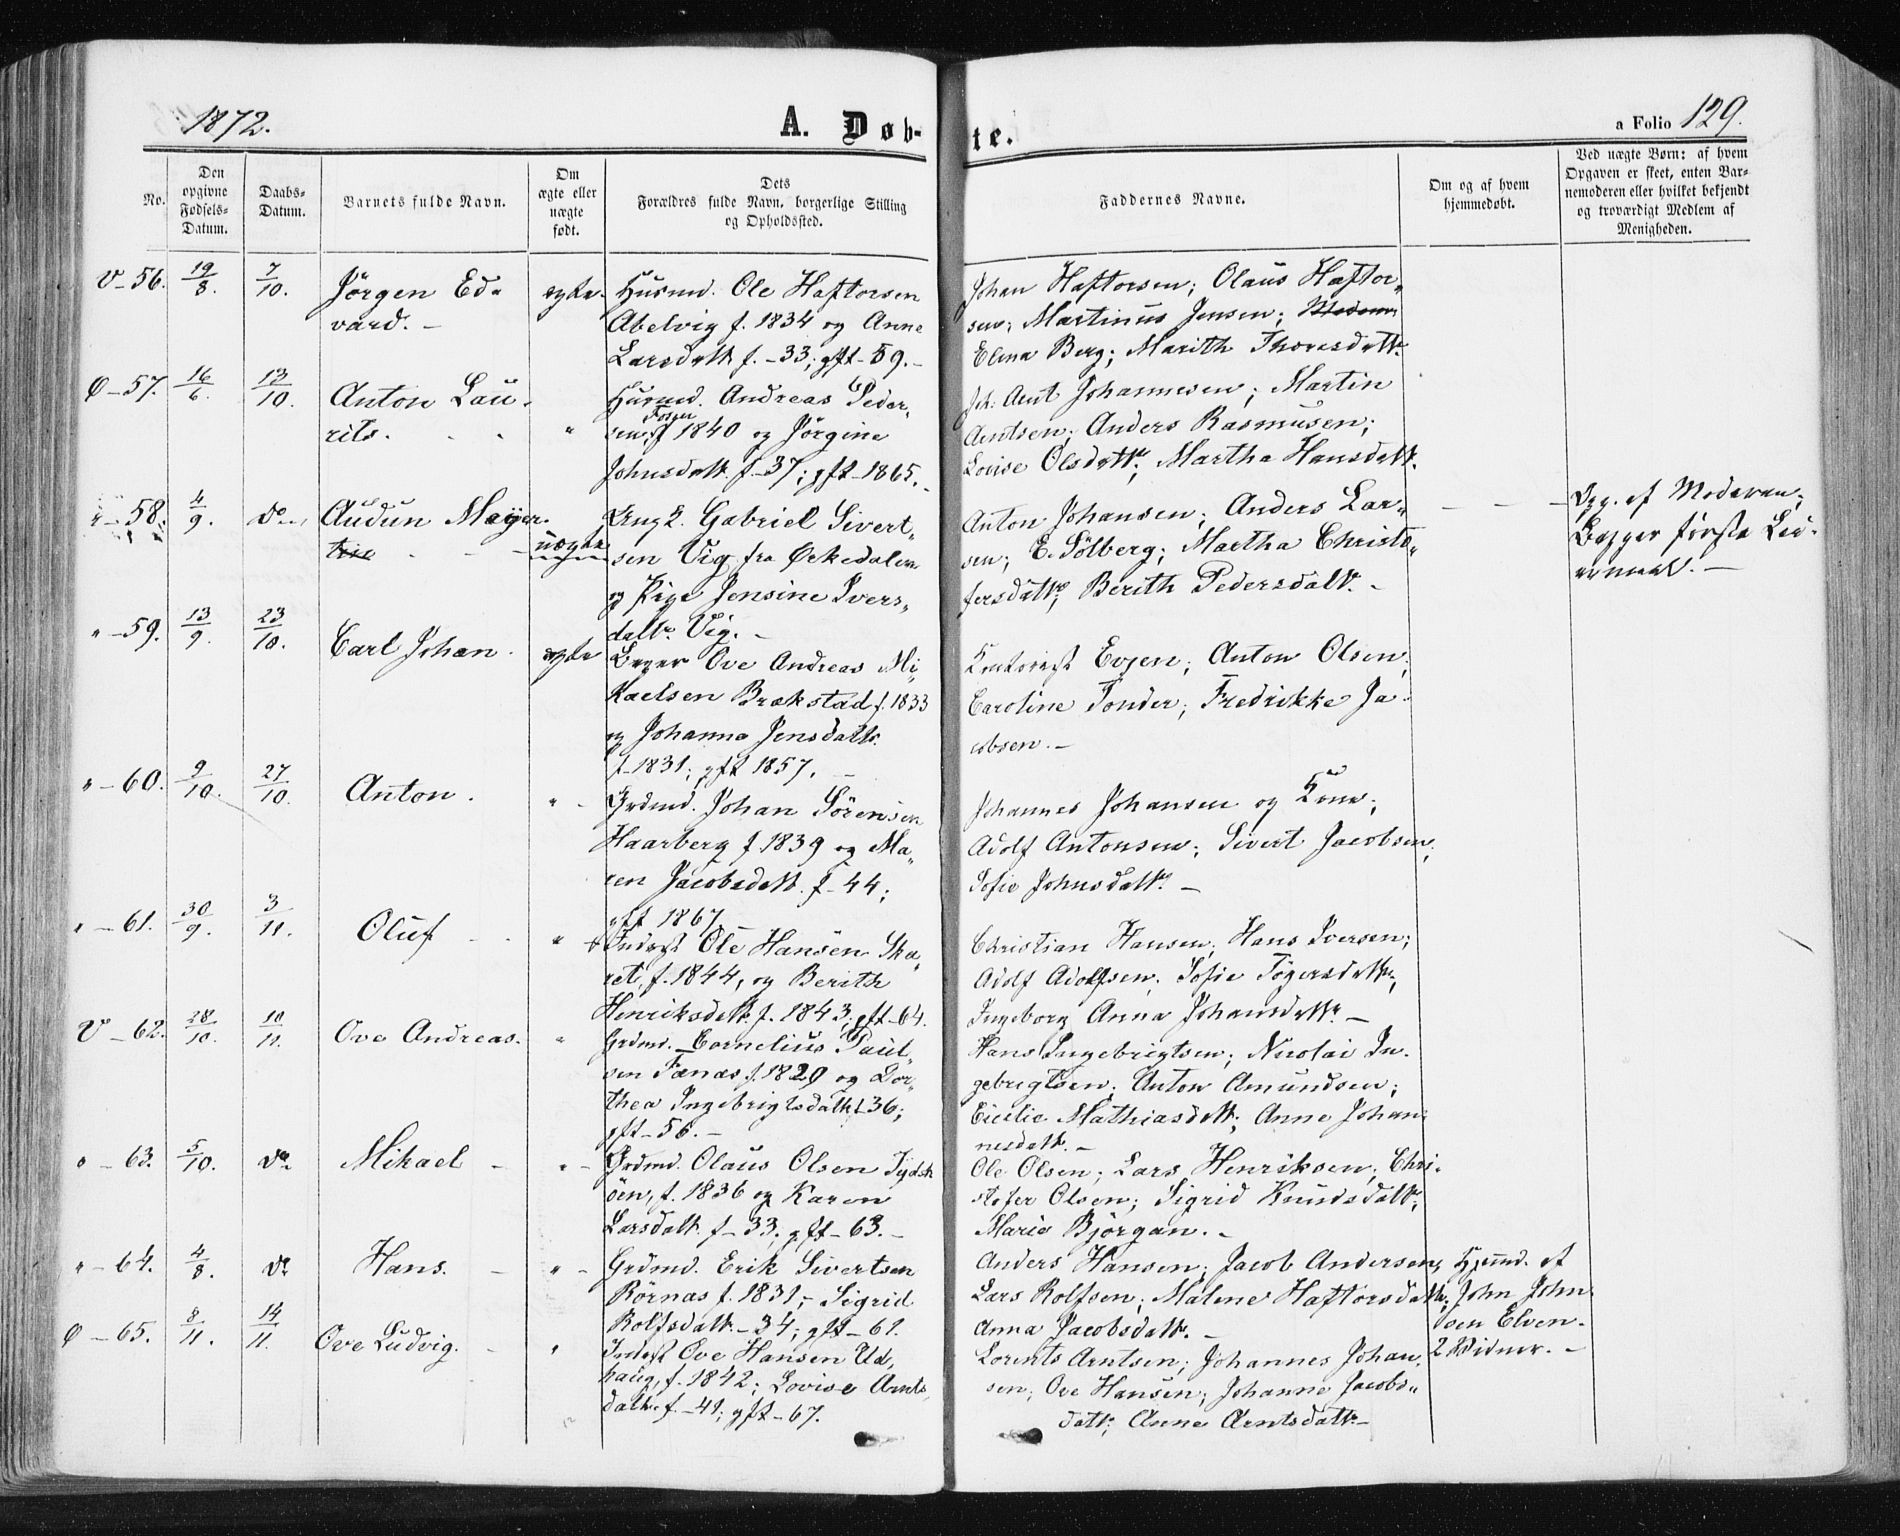 1872.
A. Døb-
te.
a Folio 129.
No.
Den
opgivne
Fødsels-
Datum.
Daabs-
Datum.
Barnets fulde Navn.
Om
ægte eller
uægte
født.
Dets
Forældres fulde Navn, borgerlige Stilling
og Opholdssted.
Faddernes Navne.
Om og af hvem
hjemmedøbt.
Ved uægte Børn: af hvem
Opgaven er skeet, enten Bar-
nemoderen eller hvilket bekjendt
og troværdigt Medlem af
Menigheden.
V-56. 19/8. 7/10. Jörgen Ed-
vard. -
ægte.
Husmd. Ole Haftorsen
Abelvig f. 1834 og Anne
Larsdatt. f. -33; gft -59. -
Johan Haftorsen; Olaus Haftor-
sen; Martinus Jensen;
Elena Berg; Marith Thoresdatt.
Ø-57. 16/6. 13/10. Anton Lau-
rits. "
Husmd. Andreas Peder-
sen, Fosen f 1840 og Jörgine
Johnsdatt. f -37; gft -1865. -
Joh: Arnt Johannesen; Martin
Arntsen; Anders Rasmusen;
Lovise Olsdatt.; Martha Hansdatt.
" -58. 4/9. do Audun Meyer
uægte
Ungk. Gabriel Sivert-
sen Vig fra Örkedalen
og Pige Jensine Ivers-
datt. Vig. -
Anton Johansen; Anders Lar-
sen; E. Sölberg; Martha Christo-
fersdatt; Berith Pedersdatt. -
Opg. af Moderen;
Begges første Lei-
ermaal. -
" -59. 13/9. 23/10. Carl Johan. ægte
Ove Andreas Mi-
kaelsen Brækstad f. 1833
og Johanna Jensdatt.
f -1831; gft 1857. -
Evjen; Anton Olsen;
Caroline Tonder; Fredrikke Ja-
cobsen. -
" -60. 9/10. 27/10. Anton. " -
Grdmd. Johan Sörensen
Haarberg f. 1839 og Ma-
ren Jacobsdatt. f -44;
gft 1867
Johannes Johansen og Kone;
Adolf Antonsen; Sivert Jacobsen;
Sofie Johnsdatt. -
" -61. 30/9. 3/11. Oluf "
Inderst Ole Hansen Ska-
ret, f. 1844, og Berith
Henriksdatt. f. 1843; gft -64.
Christian Hansen; Hans Iversen;
Adolf Adolfsen; Sofie Tögersdatt.;
Ingeborg Anna Johansdatt. -
V-62. 28/10. 10/11. Ove Andreas. "
Grdmd. Cornelius Paul-
sen Fænas f. 1829 og Dor-
thea Ingebrigtsdatt f -36;
gft -56. -
Hans Ingebrigtsen; Nicolai In-
gebrigtsen; Anton Amundsen;
Cicilie Mathiasdatt; Anne Johan-
nesdatt. -
" -63. 5/10. do Mikael - " -
Grdmd. Olaus Olsen Tydsk
öen, f. 1836 og Karen
Larsdatt. f -33; gft -63. -
Ole Olsen; Lars Henriksen; Chri-
stofer Olsen; Sigrid Knudsdatt;
Marie Björgan. -
" -64. 4/8. do Hans. - " -
Grdmd. Erik Sivertsen
Rörnas f. 1831; - Sigrid
Rolfsdatt. -34; gft -61.
Anders Hansen; Jacob Andersen,
Lars Rolfsen; Malene Haftorsdatt.;
Anna Jacobsdatt. -
Hjemd. af
John John
sen Elven-
2 Vidner. -
Ø-65. 8/11. 14/11. Ove Ludvig. - "
Inderst Ove Hansen Ud-
haug, f. 1842; Lovise Arnts-
datt. f. -41; gft -67.
Lorents Arntsen; Johannes Johan-
sen; Ove Hansen; Johanne Jacobs-
datt; Anne Arntsdatt. -